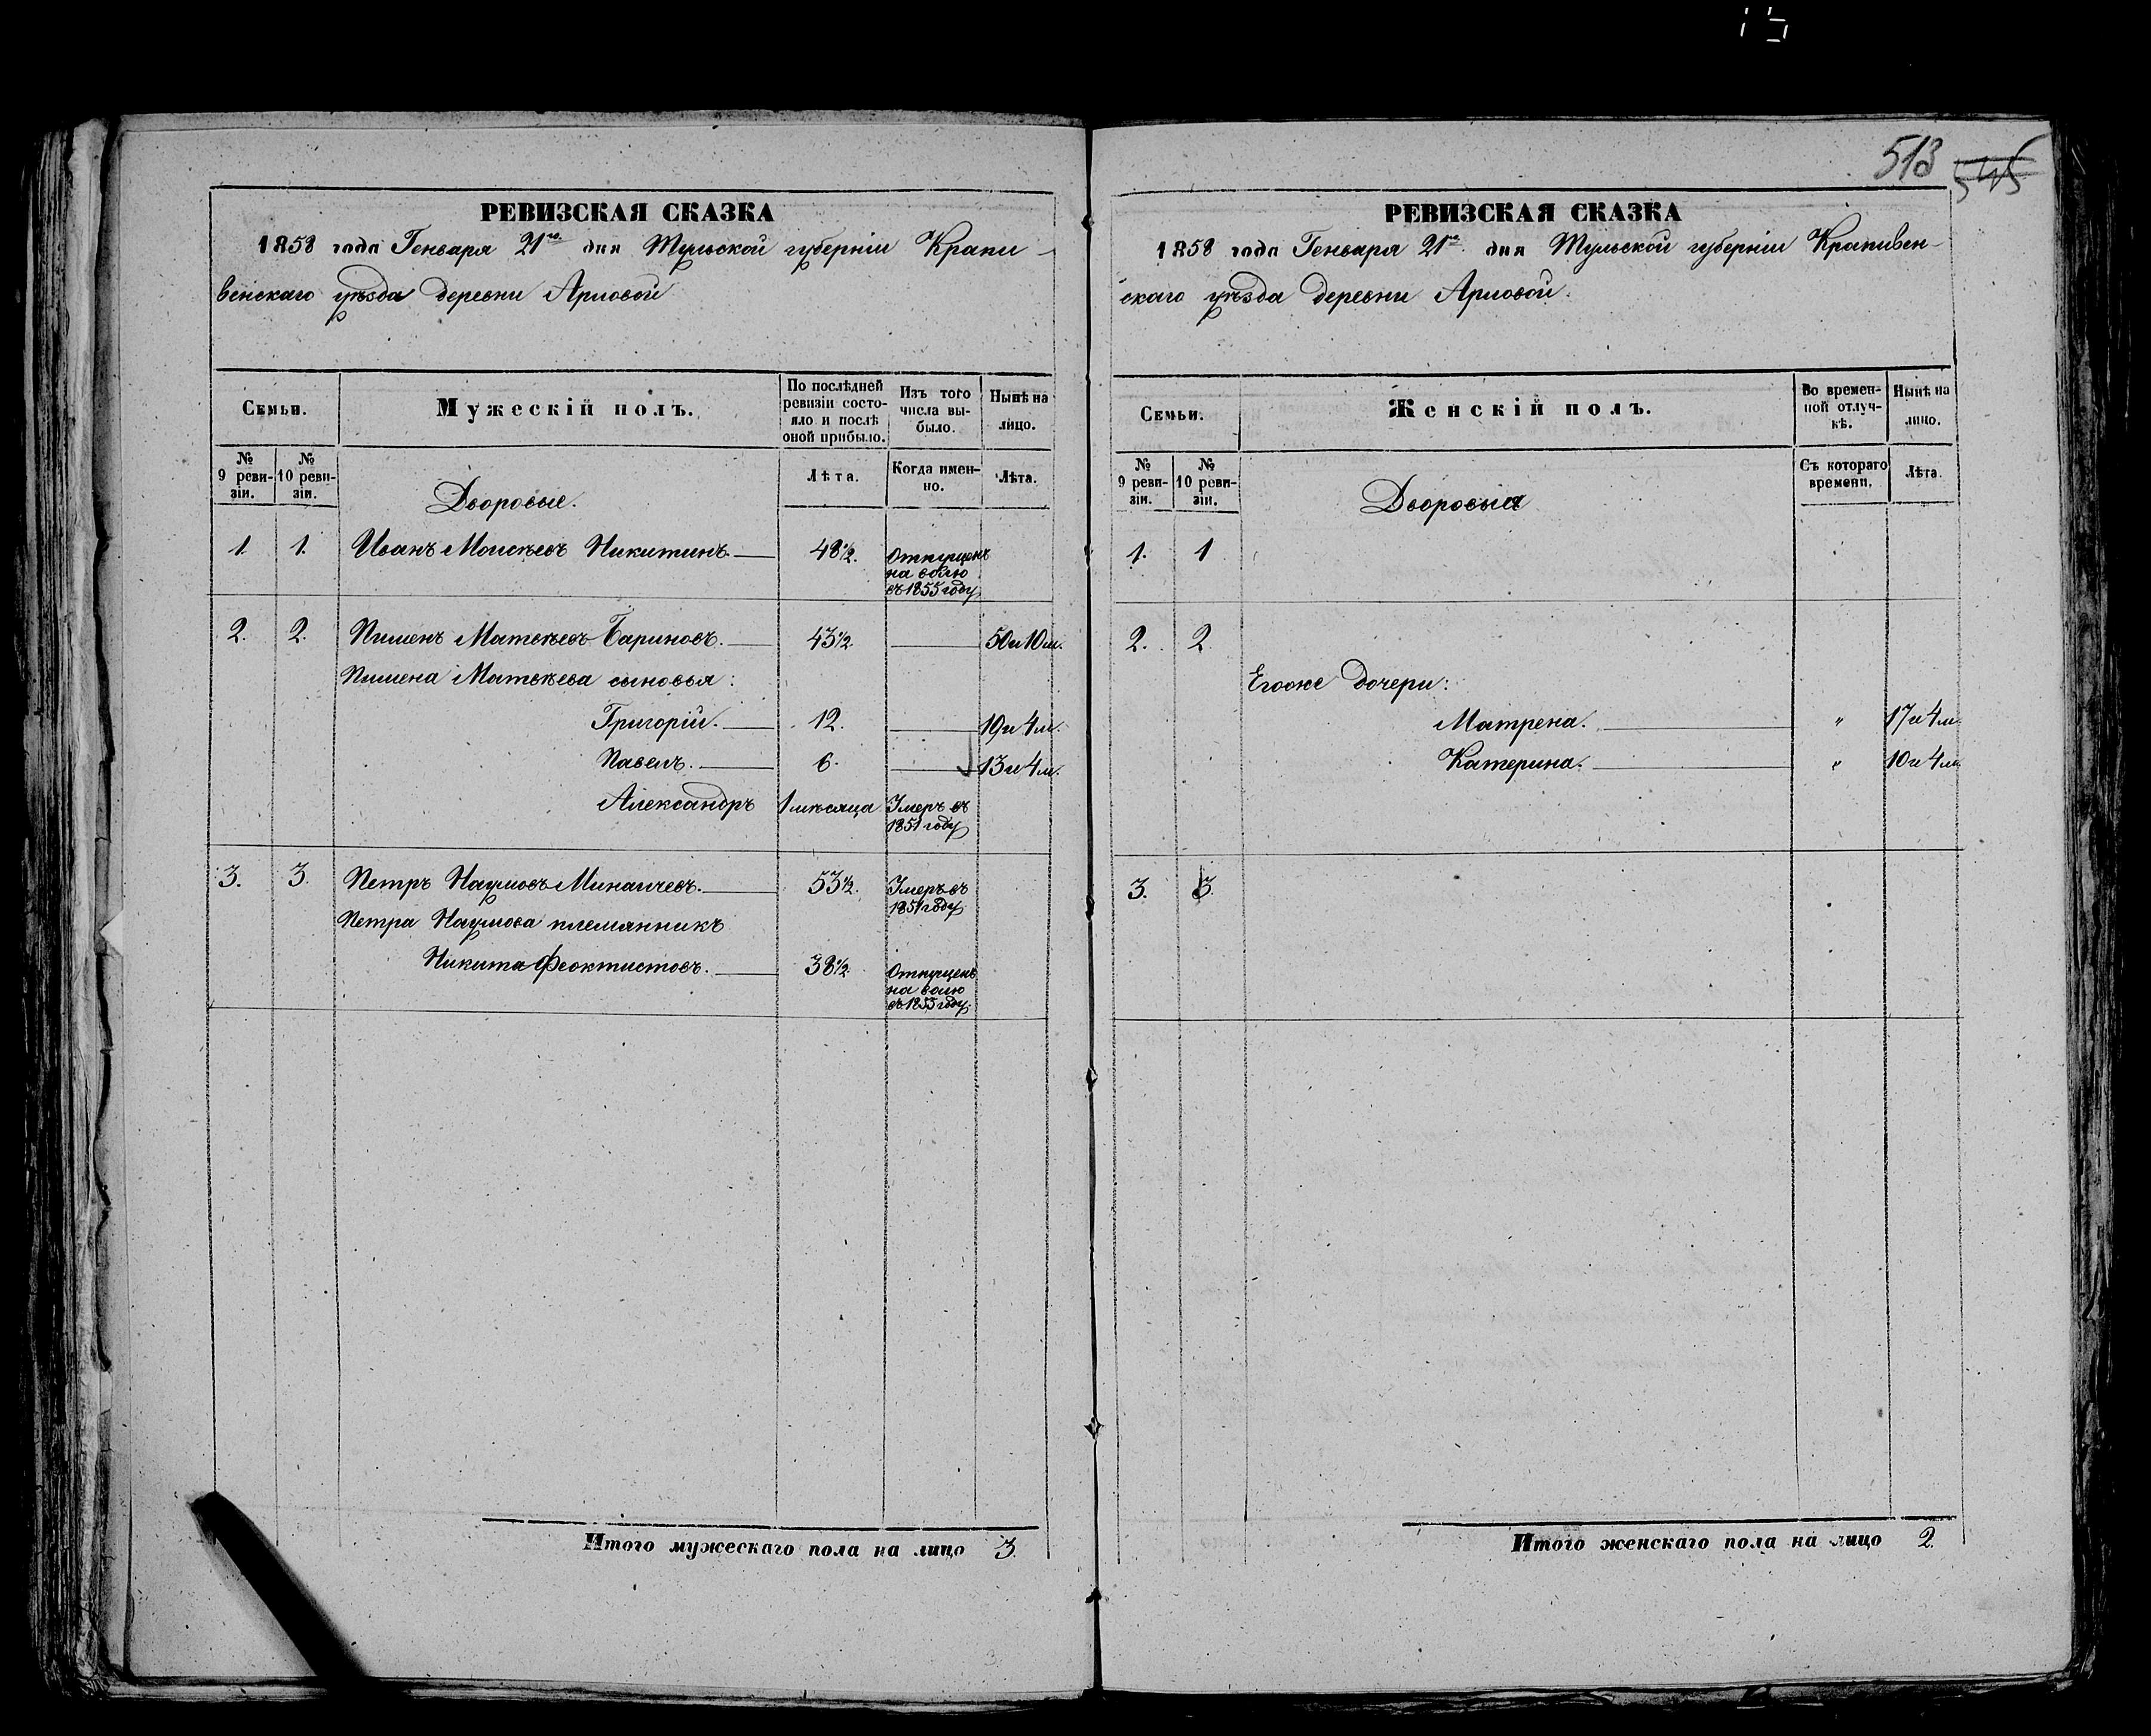 513 545
РЕВИЗСКАЯ СКАЗКА
1858 года Генваря 21го дня Тульской губерніи Крапи-
венскаго уѣзда деревни Арловой
Семьи.
Мужескій полъ.
По послѣдней ревизіи состо-
яло и послѣ оной прибыло.
Изъ того числа вы-
было.
Нынѣ на лицо.
№ 9 реви-
зіи.
№ 10 реви-
зіи.
Лѣта.
Когда имен-
но.
Лѣта.
Дворовые.
1. 1. Иванъ Моисѣевъ Никитинъ. 48½. Отпущенъ
на волю
въ 1855 году
2. 2. Пименъ Матвѣевъ Бариновъ. 43½. 50 и 10 м.
Пимена Матвѣева сыновья:
Григорій. 12. 19 и 4 м.
Павелъ. 6. 13 и 4 м.
Александръ 1 мѣсяца Умеръ въ
1851 году
3. 3. Петръ Наумовъ Минаичевъ. 53½. Умеръ въ
1851 году
Петра Наумова племянникъ
Никита Феоктистовъ. 38½. Отпущенъ
на волю
въ 1855 году.
Итого мужескаго пола на лицо 3.
РЕВИЗСКАЯ СКАЗКА
1858 года Генваря 21го дня Тульской губерніи Крапивен-
скаго уѣзда деревни Арловой.
Семьи.
Женскій полъ.
Во времен-
ной отлуч-
кѣ.
Нынѣ на
лицо.
№ 9 реви-
зіи.
№ 10 реви-
зіи.
Съ котораго
времени.
Лѣта.
Дворовыя
1. 1
2. 2.
Егоже дочери:
Матрена. " 17 и 4 м.
Катерина. " 10 и 4 м.
3. 3.
Итого женскаго пола на лицо 2.